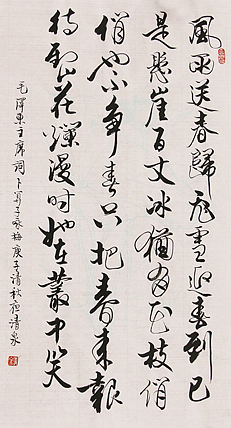 風雨送春歸飛雪迎春到已
是懸崖百丈冰猶有花枝俏
俏也不爭春只把春來報
待到山花爛漫時她在叢中笑
毛澤東主席詞卜算子咏梅庚子清秋夜清泉